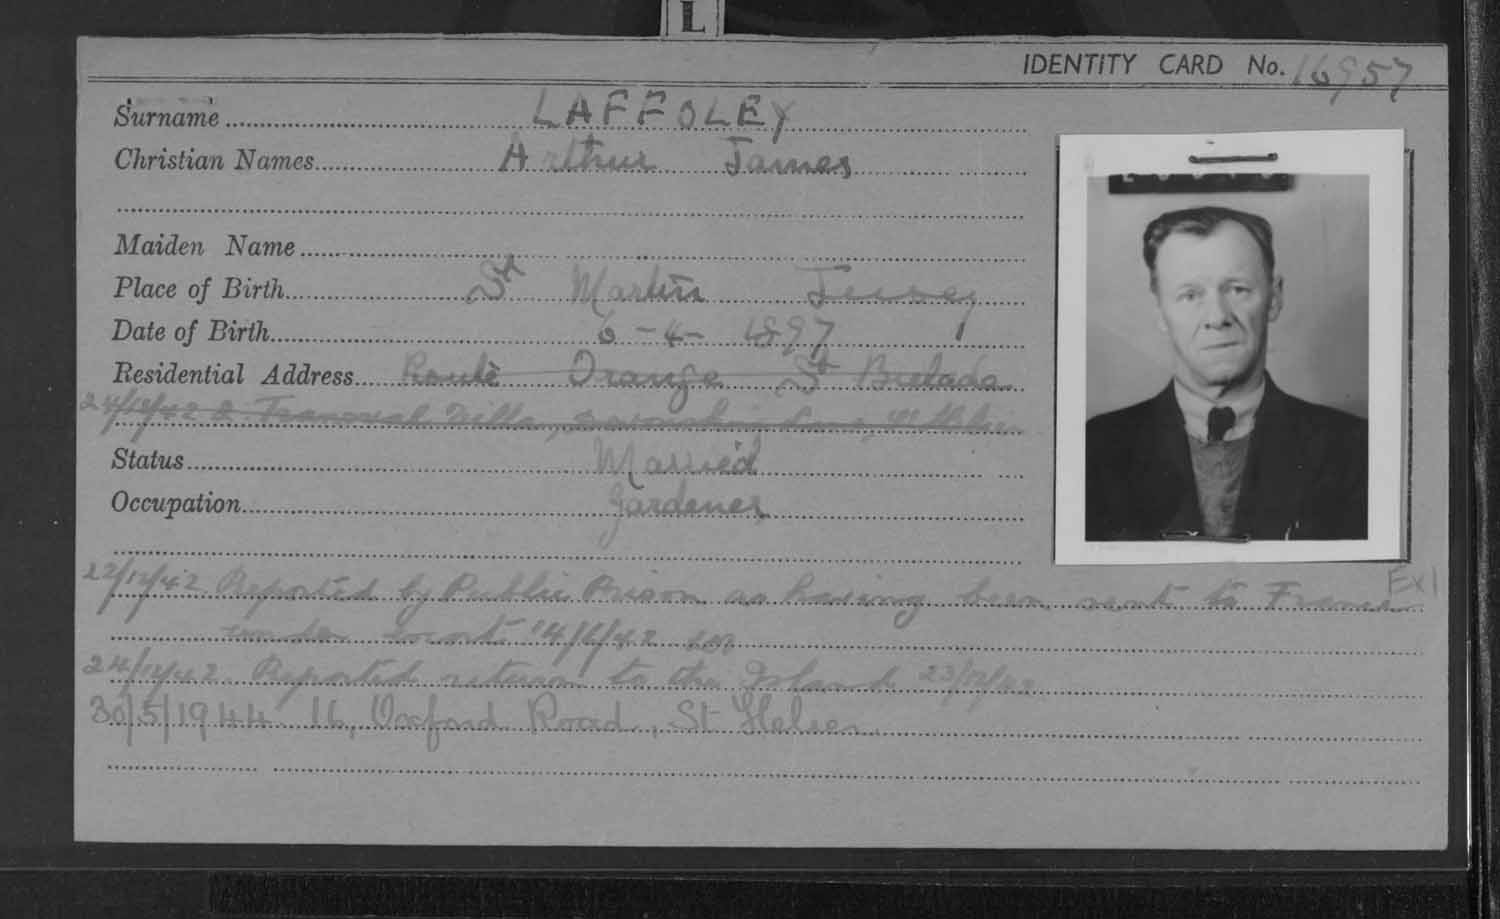 L
IDENTITY CARD No. 16957
Surname LAFFOLEY
Christian Names Arthur James
Maiden Name
Place of Birth St Martin Jersey
Date of Birth 6-4-1897
Residential Address Route Orange St Brelade
24/12/42 2 Transval Villa,
Status Married
Occupation gardener
22/12/42 Reported by Public Prison as having been sent to France Ex1
under escort 14/6/42
24/12/42 Reported return to the Island 23/12/42
30/5/1944 16, Oxford Road, St Helier.